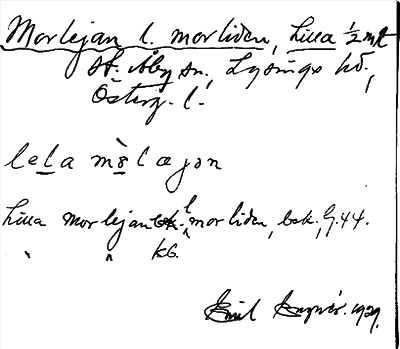 Morlejan l. morliden, Lilla 1/2 mtl
St. Åby sn., Lysings hd.,
Österg. l.
lela mòlajən
Lilla morlejan l. morliden, bsk. G. 44.
" " KB.
Emil 1929.